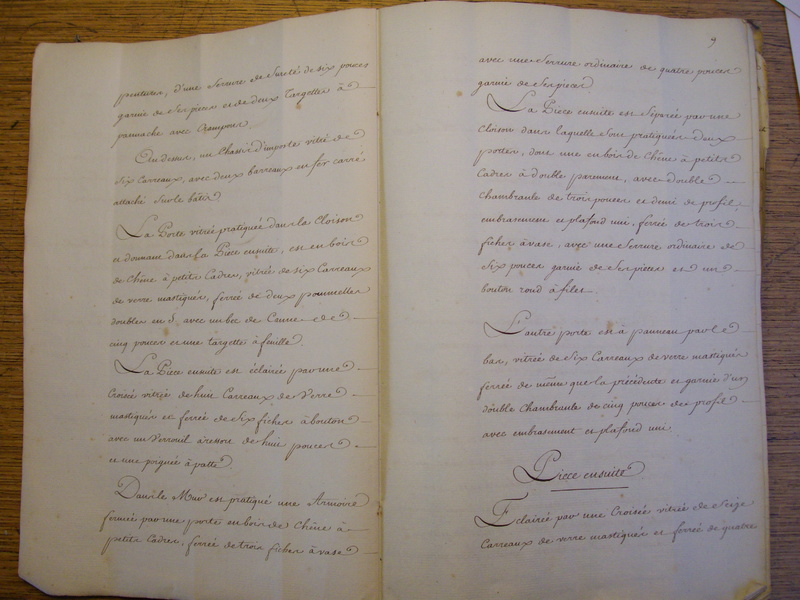 pentures, d'une Serrure de Sureté de six pouces
garnie de Ses pieces et de deux Targettes à
panache avec Crampons
Au dessus, un Chassis d'imposte vitré de
Six Carreaux, avec deux barreaux en fer carré
attaché sur le bâtis
La Porte vitrée pratiquée dans la Cloison
et donnant dans la Piece ensuite, est en bois
de Chêne à petits Cadres, vitrée de six Carreaux
de verre mastiqués, ferrée de deux pommelles
doubles en S, avec un bec de Canne de
cinq pouces et une targette à feuille
La Piece ensuite est éclairée par une
Croisée vitrée de huit Carreaux de Verre
mastiqués et ferrée de Six fiches à bouton
avec un Verrouil à ressort de huit pouces
et une poignée à patte
Dans le Mur est pratiqué une Armoire
fermée par une porte en bois de Chêne à
petits Cadres, ferrée de trois fiches à vase
9
avec une Serrure ordinaire de quatre pouces
garnie de Ses pieces
La Piece ensuite est Séparée par une
Cloison dans laquelle Sont pratiquées deux
portes, dont une en bois de Chêne à petits
Cadres à double parement, avec double
Chambranle de trois pouces et demi de profil
embrasement et plafond uni, ferrée de trois
fiches à vase, avec une Serrure ordinaire de
Six pouces garnie de Ses pieces et un
bouton rond à filet
L'autre porte est à panneau par le
bas, vitrée de Six Carreaux de verre mastiqués
ferrée de même que la précédente et garnie d'un
double Chambranle de cinq pouces de profil
avec embrasement et plafond uni
Piece ensuite
Eclairée par une Croisée vitrée de Seize
Carreaux de verre mastiqués et ferrée de quatre